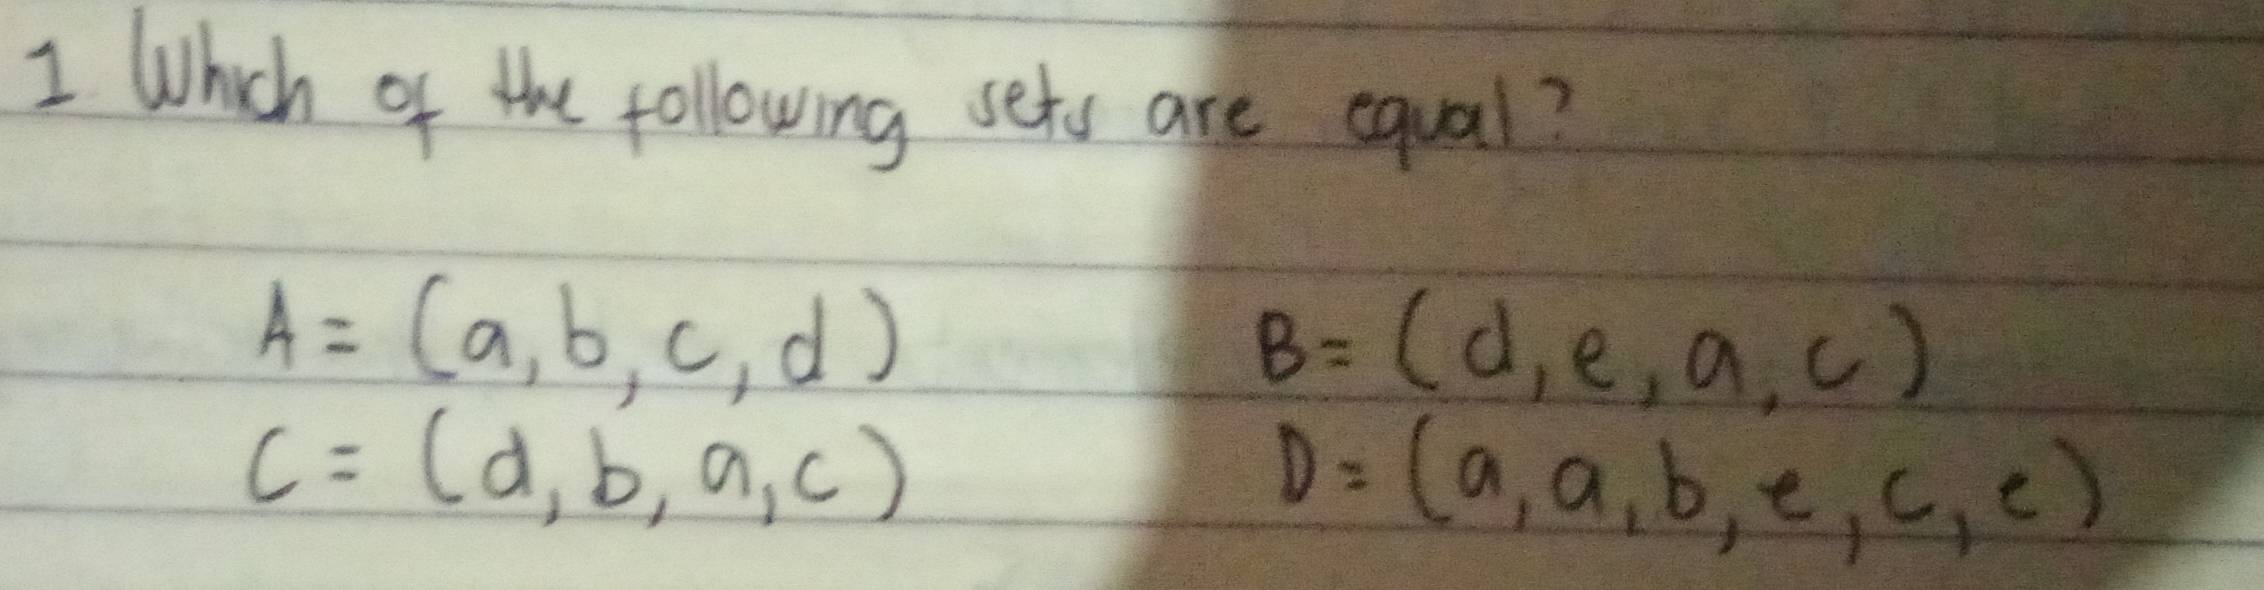 1 Which of the following sets are equal?
A = (a, b, c, d) B = (d, e, a, c)
C = (d, b, a, c) D = (a, a, b, e, c, e)